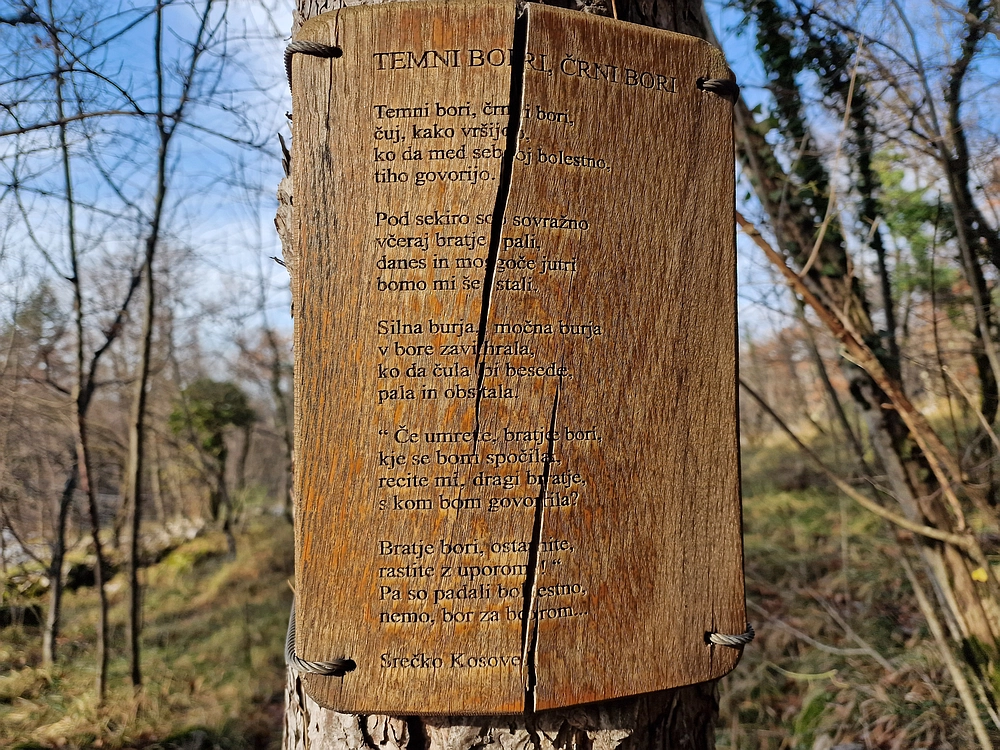 TEMNI BORI, ČRNI BORI
Temni bori, črni bori,
čuj, kako vršijo,
ko da med seboj bolestno,
tiho govorijo.
Pod sekiro so sovražno
včeraj bratje pali,
danes in mogoče jutri
bomo mi še stali.
Silna burja, močna burja
v bore zavihrala,
ko da čula bi besede,
pala in obstala.
“ Če umrete, bratje bori,
kje se bom spočila,
recite mi, dragi bratje,
s kom bom govorila?
Bratje bori, ostanite,
rastite z uporom ! “
Pa so padali bolestno,
nemo, bor za borom...
Srečko Kosovel